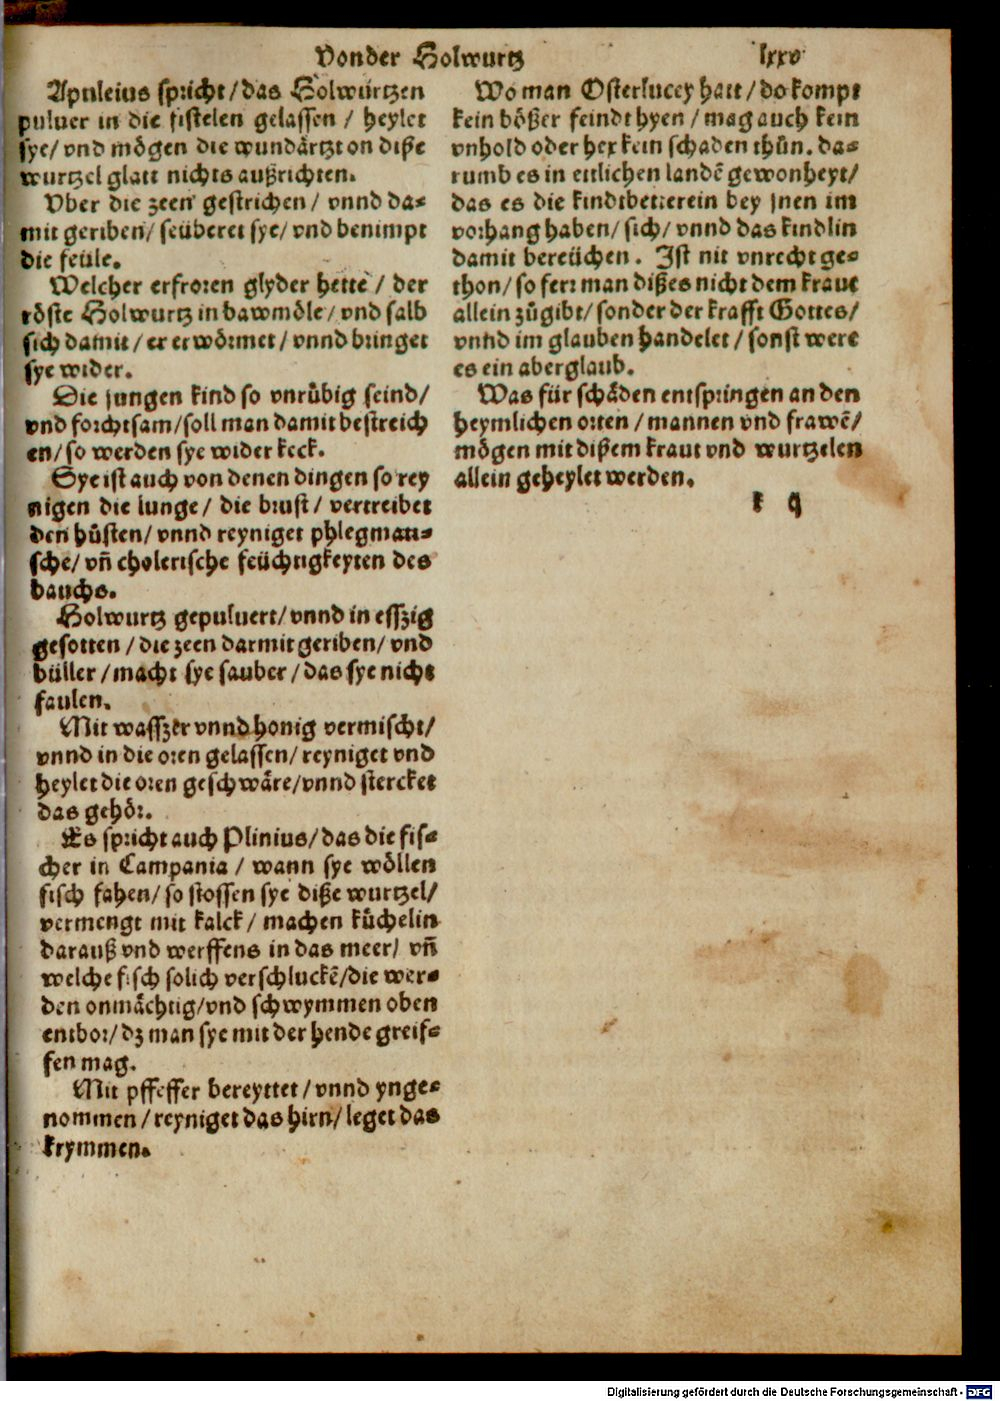 Vonder Holwurtz
lxxv
Apuleius spricht/das Holwurtzen
puluer in die fistelen gelassen / heylet
sye/ vnd mögen die wundärtzt on diße
wurtzel glatt nichts außrichten.
Vber die zeen gestrichen/ vnnd da⸗
mit geriben/ seüberet sye/ vnd benimpt
die feüle.
Welcher erfroren glyder hette / der
röste Holwurtz in bawmöle/ vnd salb
sich damit/ er erwörmet/ vnnd bringet
sye wider.
Die jungen kind so vnrůbig seind/
vnd forchtsam/soll man damit bestreich
en/ so werden sye wider keck.
Sye ist auch von denen dingen so rey
nigen die lunge/ die brust/ vertreibet
den hůsten/ vnnd reyniget phlegmau⸗
sche/ vn̄ cholerische feüchtigkeyten des
bauchs.
Holwurtz gepuluert/ vnnd in esszig
gesotten / die zeen darmit geriben/ vnd
büller / macht sye sauber / das sye nicht
faulen.
Mit wasszer vnnd honig vermischt/
vnnd in die oren gelassen/ reyniget vnd
heylet die oren geschwäre/ vnnd stercket
das gehör.
Es spricht auch Plinius/das die fis⸗
cher in Campania / wann sye wöllen
fisch fahen/ so stossen sye diße wurtzel/
vermengt mit kalck/ machen kůchelin
darauß vnd werffens in das meer/ vn̄
welche fisch solich verschluckē/die wer⸗
den onmächtig/vnd schwymmen oben
entbor/ dz man sye mit der hende greif⸗
fen mag.
Mit pffeffer bereyttet/ vnnd ynge⸗
nommen / reyniget das hirn/ leget das
krymmen.
Wo man Osterlucey hatt/ do kompt
kein bößer feindt hyen / mag auch kein
vnhold oder hex kein schaden thůn. da⸗
rumb es in ettlichen landē gewonheyt/
das es die kindtbetterein bey jnen im
vorhang haben/ sich/ vnnd das kindlin
damit bereüchen. Ist nit vnrecht ge⸗
thon/ so ferr man dißes nicht dem kraut
allein zůgibt/ sonder der krafft Gottes/
vnnd im glauben handelet / sonst were
es ein aberglaub.
Was für schäden entspringen an den
heymlichen orten / mannen vnd frawē/
mögen mit dißem kraut vnd wurtzelen
allein geheylet werden.
k q
Digitalisierung gefördert durch die Deutsche Forschungsgemeinschaft - DFG